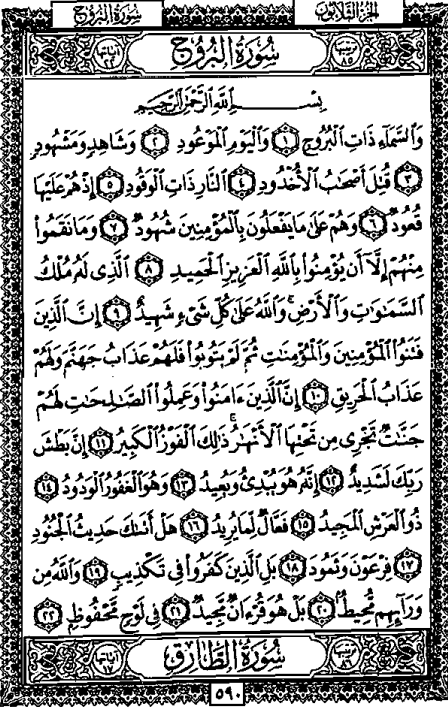 سُورَةُ البُرُوجِ الجُزْءُ الثَّلَاثُونَ
ترتيبها ٨٥ سُورَةُ البُرُوجِ آياتها ٢٢
بِسْمِ ٱللَّهِ ٱلرَّحْمَٰنِ ٱلرَّحِيمِ
وَٱلسَّمَآءِ ذَاتِ ٱلْبُرُوجِ ١ وَٱلْيَوْمِ ٱلْمَوْعُودِ ٢ وَشَاهِدٍ وَمَشْهُودٍ
٣ قُتِلَ أَصْحَٰبُ ٱلْأُخْدُودِ ٤ ٱلنَّارِ ذَاتِ ٱلْوَقُودِ ٥ إِذْ هُمْ عَلَيْهَا
قُعُودٌ ٦ وَهُمْ عَلَىٰ مَا يَفْعَلُونَ بِٱلْمُؤْمِنِينَ شُهُودٌ ٧ وَمَا نَقَمُوا۟
مِنْهُمْ إِلَّآ أَن يُؤْمِنُوا۟ بِٱللَّهِ ٱلْعَزِيزِ ٱلْحَمِيدِ ٨ ٱلَّذِى لَهُۥ مُلْكُ
ٱلسَّمَٰوَٰتِ وَٱلْأَرْضِ ۚ وَٱللَّهُ عَلَىٰ كُلِّ شَىْءٍ شَهِيدٌ ٩ إِنَّ ٱلَّذِينَ
فَتَنُوا۟ ٱلْمُؤْمِنِينَ وَٱلْمُؤْمِنَٰتِ ثُمَّ لَمْ يَتُوبُوا۟ فَلَهُمْ عَذَابُ جَهَنَّمَ وَلَهُمْ
عَذَابُ ٱلْحَرِيقِ ١٠ إِنَّ ٱلَّذِينَ ءَامَنُوا۟ وَعَمِلُوا۟ ٱلصَّٰلِحَٰتِ لَهُمْ
جَنَّٰتٌ تَجْرِى مِن تَحْتِهَا ٱلْأَنْهَٰرُ ۚ ذَٰلِكَ ٱلْفَوْزُ ٱلْكَبِيرُ ١١ إِنَّ بَطْشَ
رَبِّكَ لَشَدِيدٌ ١٢ إِنَّهُۥ هُوَ يُبْدِئُ وَيُعِيدُ ١٣ وَهُوَ ٱلْغَفُورُ ٱلْوَدُودُ ١٤
ذُو ٱلْعَرْشِ ٱلْمَجِيدُ ١٥ فَعَّالٌ لِّمَا يُرِيدُ ١٦ هَلْ أَتَىٰكَ حَدِيثُ ٱلْجُنُودِ
١٧ فِرْعَوْنَ وَثَمُودَ ١٨ بَلِ ٱلَّذِينَ كَفَرُوا۟ فِى تَكْذِيبٍ ١٩ وَٱللَّهُ مِن
وَرَآئِهِم مُّحِيطٌۢ ٢٠ بَلْ هُوَ قُرْءَانٌ مَّجِيدٌ ٢١ فِى لَوْحٍ مَّحْفُوظٍۭ ٢٢
ترتيبها ٨٦ سُورَةُ الطَّارِقِ آياتها ١٧
٥٩٠